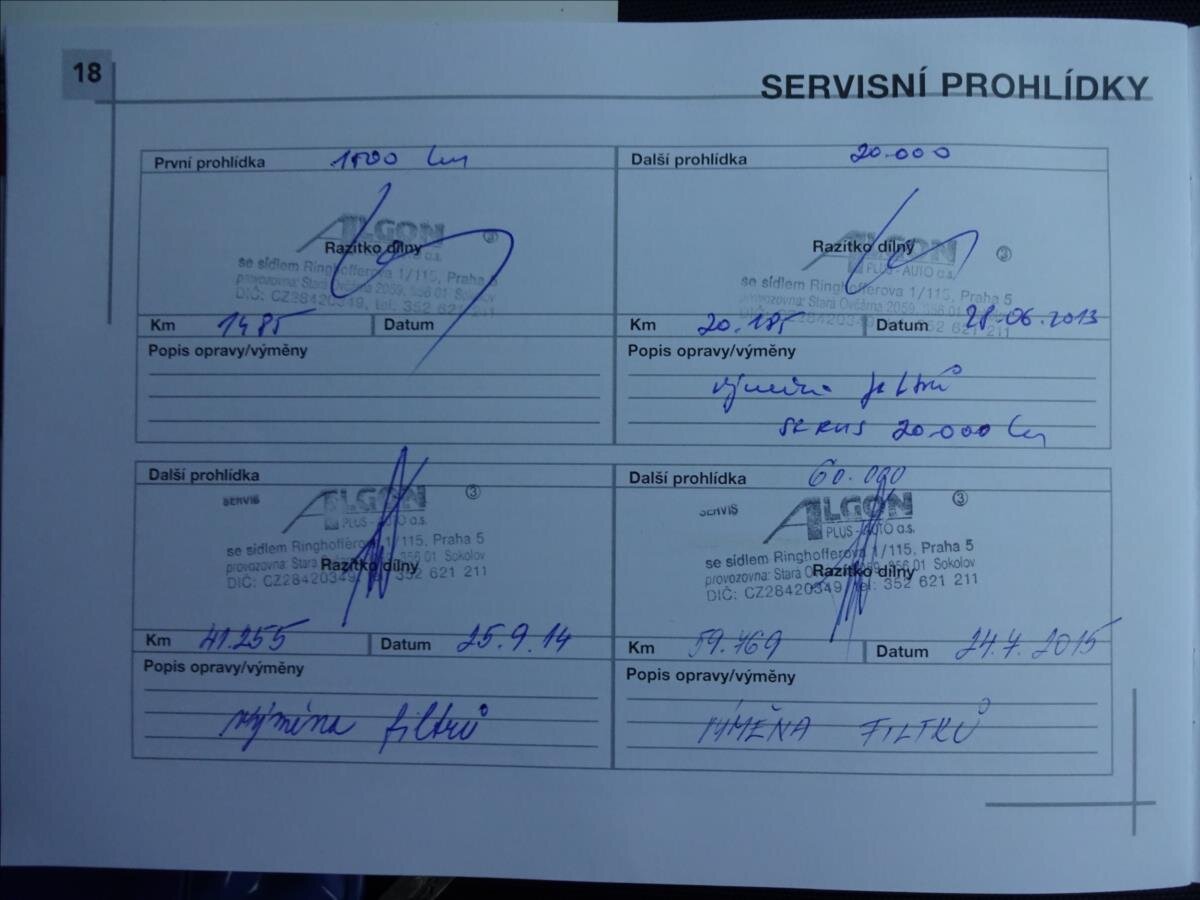 18
SERVISNÍ PROHLÍDKY
První prohlídka 1500 km
ALGON
Razítko dílny
se sídlem Ringhofferova 1/115, Praha 5
provozovna: Stará Ovčárna 2059, 356 01 Sokolov
DIČ: CZ28420349, tel: 352 621 211
Km 1485 Datum
Popis opravy/výměny
Další prohlídka 20.000
ALGON
Razítko dílny
PLUS - AUTO a.s.
se sídlem Ringhofferova 1/115, Praha 5
provozovna: Stará Ovčárna 2059, 356 01 Sokolov
352 621 211
Km 20.185 Datum 28.06.2013
Popis opravy/výměny
výměna filtrů
SERVIS 20.000 km
Další prohlídka
SERVIS ALGON 3
PLUS - AUTO a.s.
se sídlem Ringhofferova 1/115, Praha 5
provozovna: Stará 356 01 Sokolov
Razítko dílny
DIČ: CZ28420349, tel: 352 621 211
Km 41.255 Datum 25.9.14
Popis opravy/výměny
výměna filtrů
Další prohlídka 60.000
SERVIS ALGON 3
PLUS - AUTO a.s.
se sídlem Ringhofferova 1/115, Praha 5
provozovna: Stará 356 01 Sokolov
Razítko dílny
DIČ: CZ28420349 tel: 352 621 211
Km 59.769 Datum 24.7.2015
Popis opravy/výměny
VÝMĚNA FILTRŮ